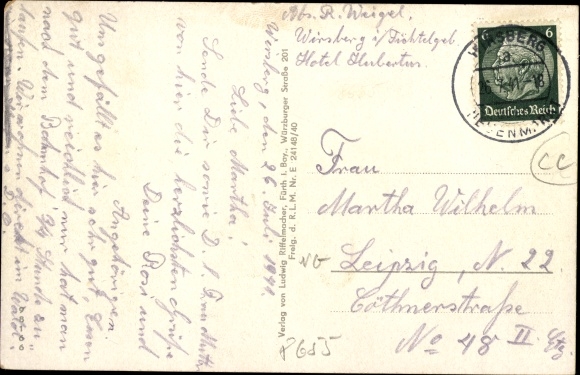 Wirsberg, den 26. Juli 1941.
Liebe Martha!
Sende Dir sowie D. l. Frau Mutter
von hier die herzlichsten Grüße
Deine Rosi und
Angehörigen.
Uns gefällt es hier sehr gut, Essen
gut und reichlich nur hat man
nach dem Bahnhof 3/4 Stunde zu
laufen. Wir wohnen direkt im Walde.
Verlag von Ludwig Riffelmacher, Fürth i. Bay., Würzburger Straße 201
Freig. d. R.L.M. Nr. E 24148/40
Abs. R. Weigel,
Wirsberg i/Fichtelgeb.
Hotel Hubertus.
6 6
Deutsches Reich
WIRSBERG
Frau
Martha Wilhelm
Leipzig, N. 22
Cöthnerstraße
No 48 II. Etg.
CC
P655